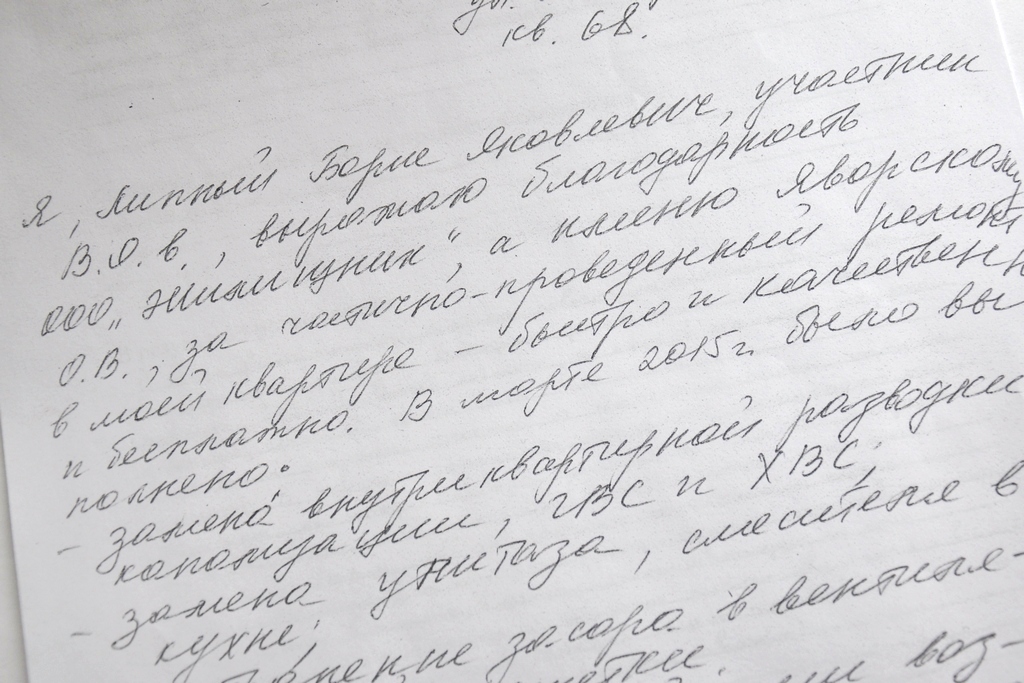 ул.
кв. 68.
Я, Липный Борис Яковлевич, участник
В.О.в., выражаю благодарность
ООО „Жилищник", а именно Яворскому
О.В., за частично-проведенный ремонт
в моей квартире - быстро и качественн
и бесплатно. В марте 2015г. было вы
полнено:
- замена внутриквартирной разводки
канализации, ГВС и ХВС;
- замена унитаза, смесителя в
кухне;
засора в вентиля-
воз-